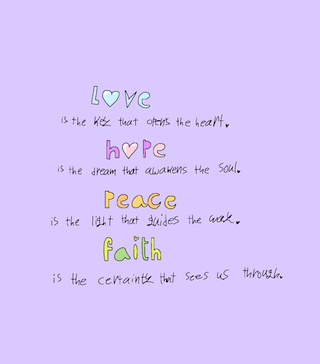 love
is the key that opens the heart.
hope
is the dream that awakens the soul.
Peace
is the light that guides the weak.
faith
is the certainty that sees us through.